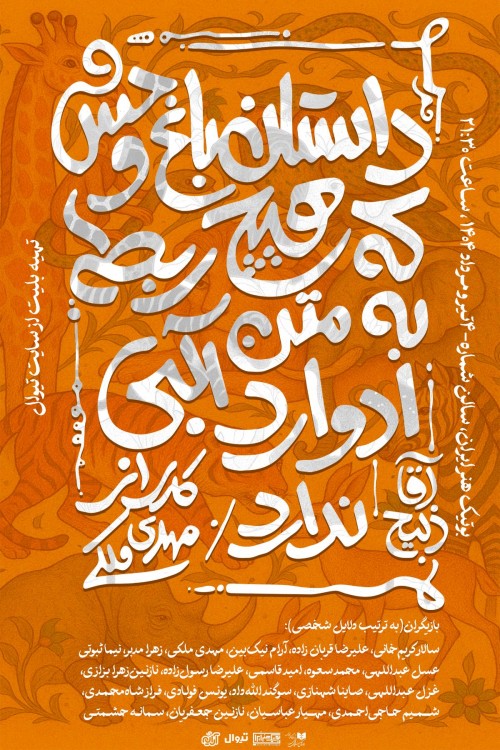 داستان باغ وحش
که هیچ ربطی
به متن آلبی
ادوارد
ندارد/.
آقا ذبیح
کاری از
مهدی ملکی
بوتیک هنر ایران، سالن شماره ۴- تیر و مرداد ۱۴۰۴، ساعت ۲۱:۳۰
تهیه بلیت از سایت تیوال
بازیگران (به ترتیب دلایل شخصی):
سالار کریم‌خانی، علیرضا قربان زاده، آرام نیک‌بین، مهدی ملکی، زهرا مدبر، نیما ثبوتی
عسل عبداللهی، محمد سعوه، امید قاسمی، علیرضا رسول‌زاده، نازنین زهرا بزازی،
غزل عبداللهی، صاینا شهنازی، سوگند الله‌داد، یونس فولادی، فراز شاه‌محمدی،
شمیم حاجی‌احمدی، مهیار عباسیان، نازنین جعفریان، سمانه حشمتی
تیوال